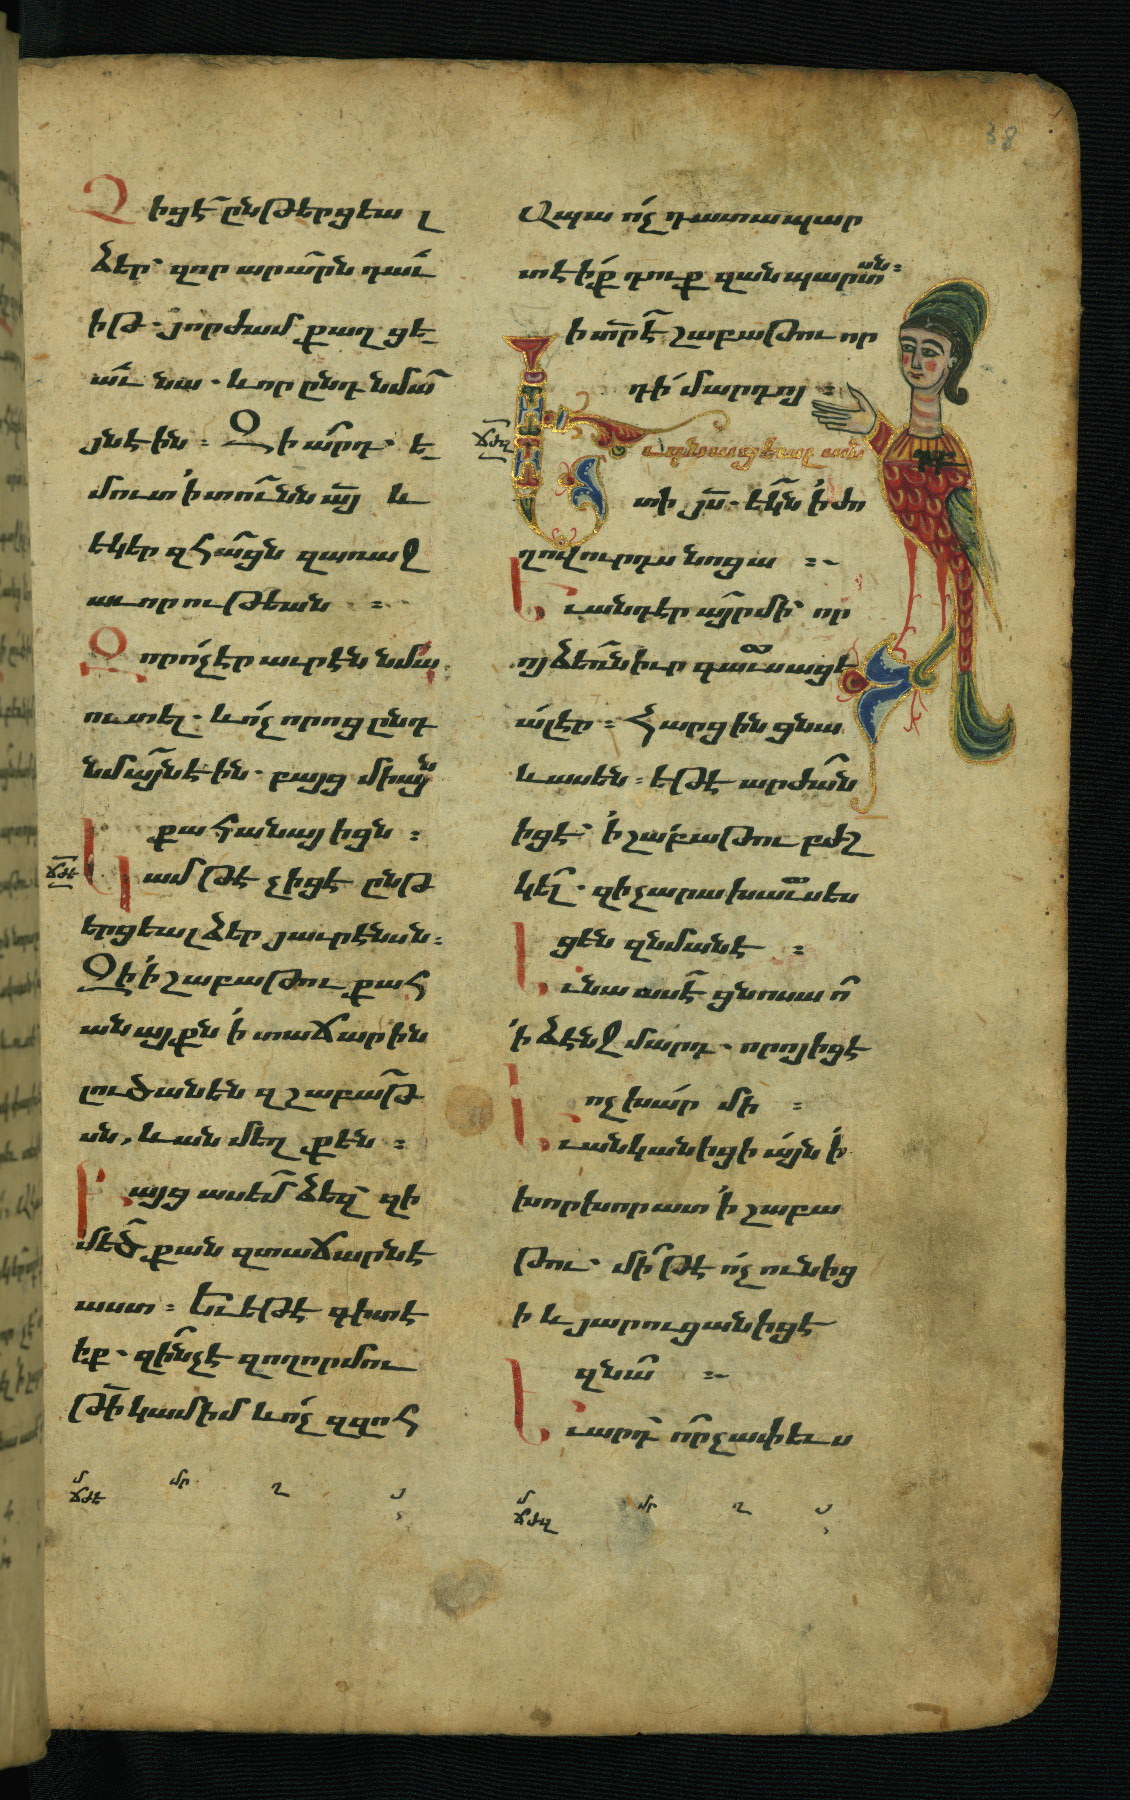 38
Չիցէ՞ ընթերցեալ
ձեր՝ զոր արա՛րն դաւ՛
իթ · յորժամ քաղցե
ա՛ւ նա · և որ ընդ նմա՛
յնէին ։ Զի ա՛րդ՝ ե
մուտ ի տու՛նն այ և
եկեր զհա՛ցն զառաջ
աւորութեան ։
Զոր ո՛չ էր աւրէն նմա
ուտել · և ո՛չ որոց ընդ
նմայնէին · բայց միայն
քահանայիցն ։
ՃԺԵ
Կամ թէ չիցէ ընթ
երցեալ ձեր յաւրէնսն ։
Զի ի շաբաթու քահ
անայքն ի տաճարին
լուծանեն զշաբաթ
սն, և անմեղ քեն ։
Բայց ասեմ ձեզ՝ զի
մեծ քան զտաճարնէ
աստ ։ Եւ եթէ գիտէ
իք · զի՛նչ է զողորմու
թի կամիմ և ո՛չ զզոհ
ՃԺԵ մր ղ յ
Ապա ո՛չ դատապար
տէիք դուք զանպարտսն ։
ի տր է շաբաթու որ
դի մարդոյ ։
ՃԺԶ
Եւ գնացեալ անտի յս · եկն ի ժո
ղովուրդս նոցա ։
Եւ անդ էր այր մի՝ որ
ոյ ձեռն իւր գաւսացե
ալ էր ։ Հարցին ցնա
և ասեն ։ եթէ արժան
իցէ՝ ի շաբաթու բժշ
կել · զի չարախաւսես
ցեն զնմանէ ։
Եւ նա ասէ ցնոսա ո՞
ի ձէնջ մարդ · որոյ իցէ
ոչխար մի ։
Եւ անկանիցի այն ի
խորխորատ ի շաբա
թու · մի՛ թէ ո՛չ ունից
ի և յարուցանիցէ
զնա ։
Եւ արդ ո՞րչափ ևս
ՃԺԶ մր ղ յ